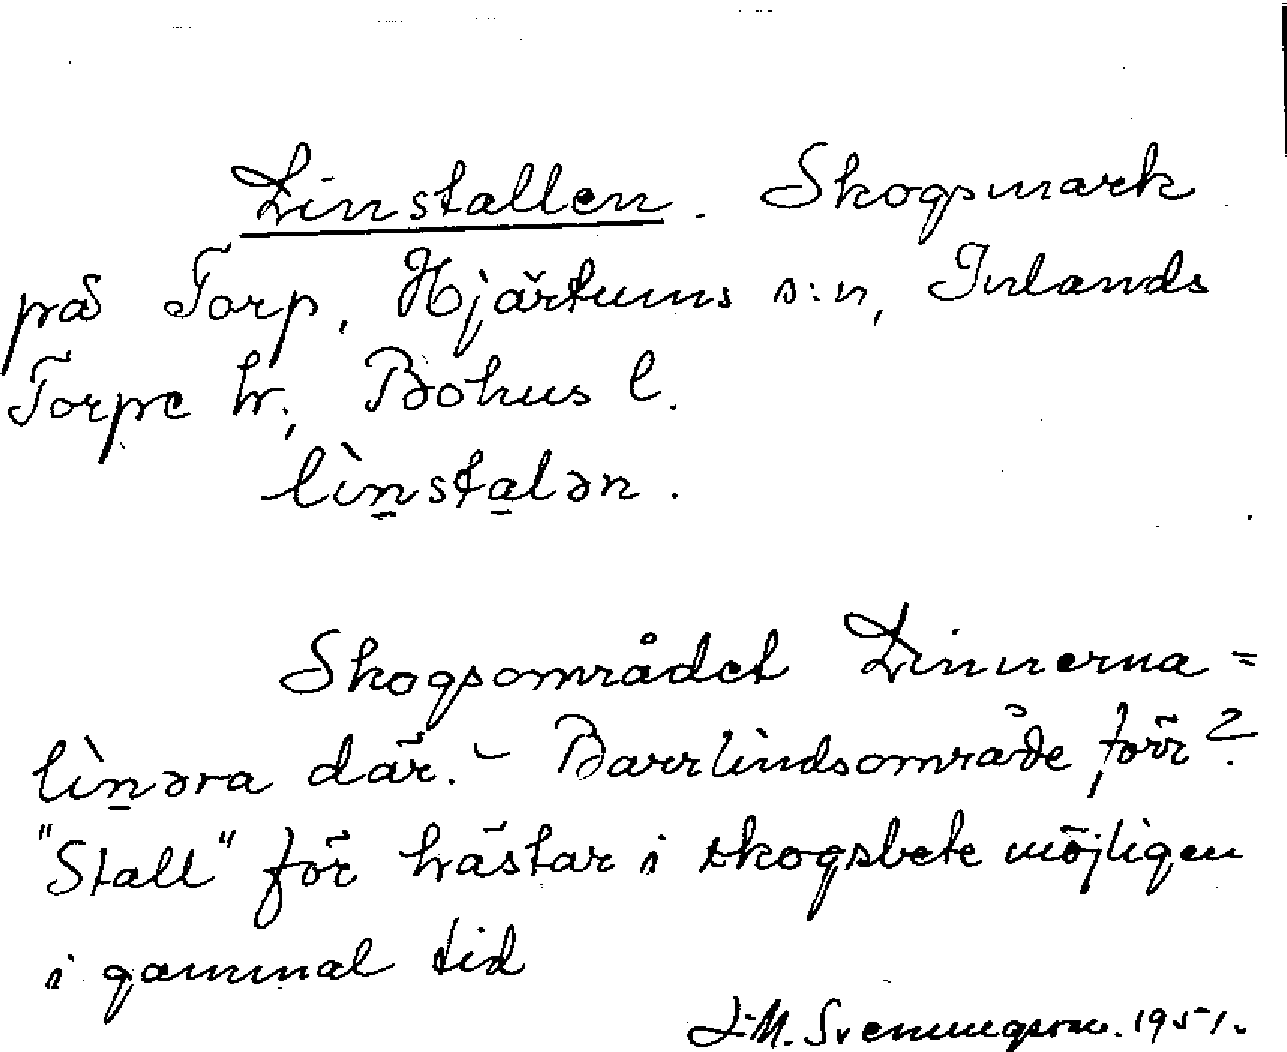 Linstallen. Skogsmark
på Torp, Hjärtums s:n, Inlands
Torpe hr., Bohus l.
lìn̠sta̠lən.
Skogsområdet Linnerna =
lìn̠əra där. – Barrlindsområde förr?
"Stall" för hästar i skogsbete möjligen
i gammal tid
J.M. Svenungsson. 1951.